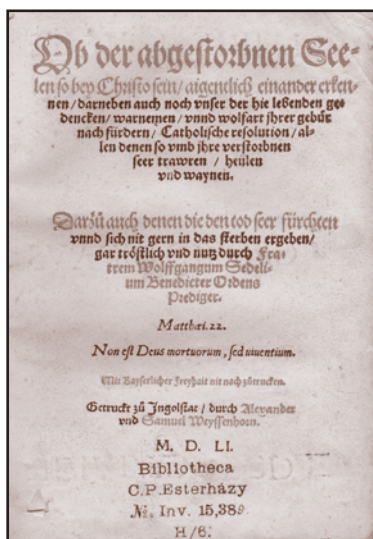 Ob der abgestorbnen See-
len so bey Christo sein / aigentlich einander erken-
nen / darneben auch noch vnser der hie lebenden ge-
dencken / warnemen / vnnd wolfart jhrer gebür
nach fürdern / Catholische resolution / al-
len denen so vmb jhre verstorbnen
seer trawren / heülen
vnd waynen.
Darzů auch denen die den tod seer fürchten
vnnd sich nit gern in das sterben ergeben /
gar tröstlich vnd nutz durch Fra-
trem Wolffgangum Sedeli-
um Benedicter Ordens
Prediger.
Matthæi. 22.
Non est Deus mortuorum, sed viuentium.
Mit Kayserlicher Freyhait nit nach zůtrucken.
Getruckt zů Jngolstat / durch Alexander
vnd Samuel Weyssenhorn.
M. D. LI.
Bibliotheca
C. P. Esterházy
№. Inv. 15,389
H/6.